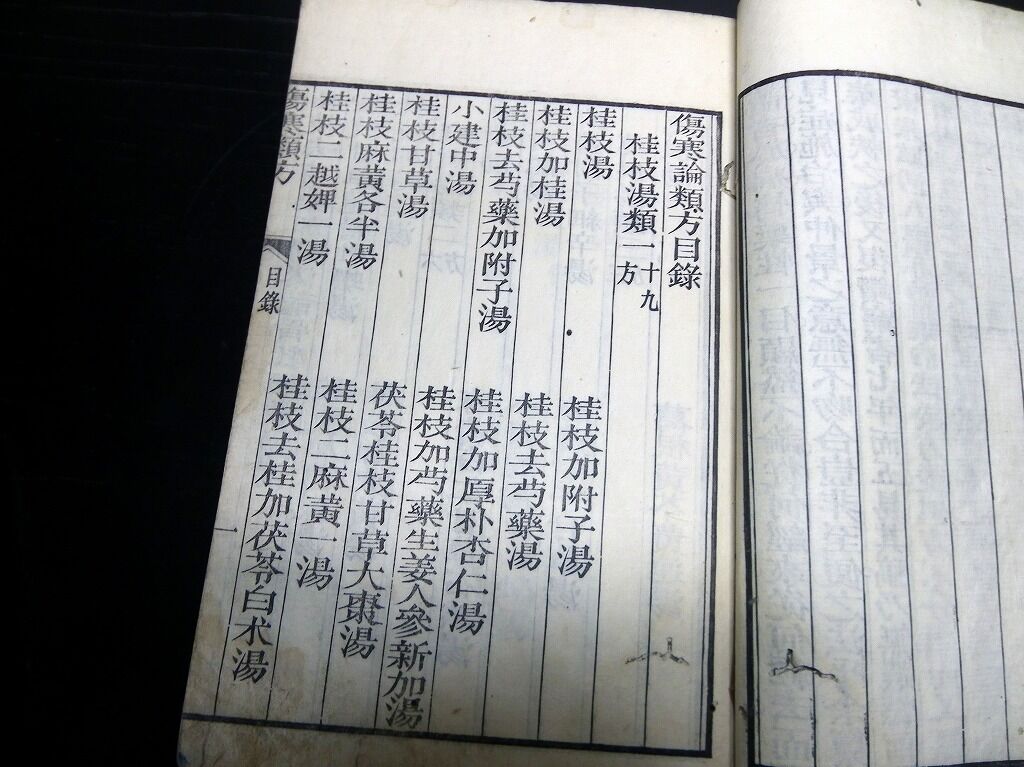 傷寒論類方目錄
桂枝湯類一十九方
桂枝湯
桂枝加附子湯
桂枝加桂湯
桂枝去芍藥湯
桂枝去芍藥加附子湯
桂枝加厚朴杏仁湯
小建中湯
桂枝加芍藥生姜人參新加湯
桂枝甘草湯
茯苓桂枝甘草大棗湯
桂枝麻黃各半湯
桂枝二麻黃一湯
桂枝二越婢一湯
桂枝去桂加茯苓白术湯
傷寒類方
目錄
一